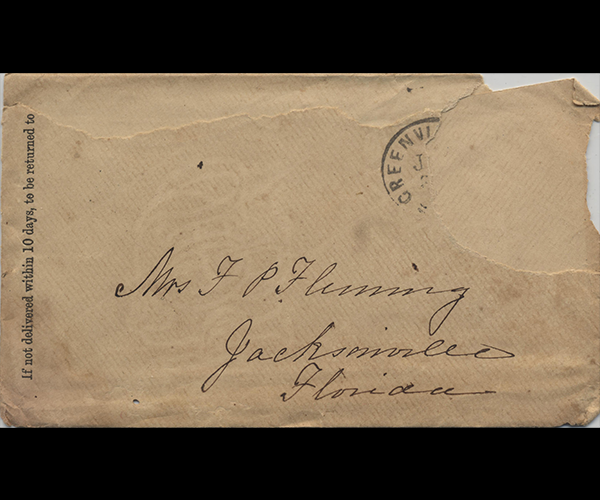 If not delivered within 10 days, to be returned to
GREENVI
Mrs F. P. Fleming
Jacksonville
Florida